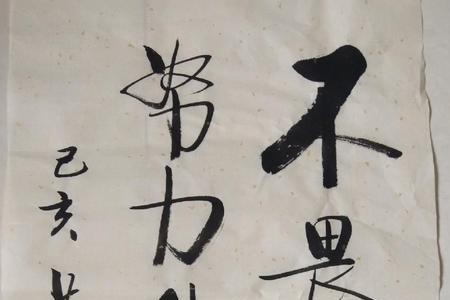 不畏
努力
己亥